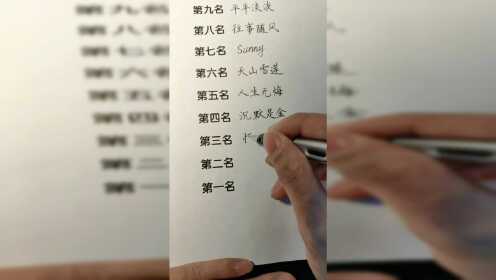 第九名 平平淡淡
第八名 往事随风
第七名 Sunny
第六名 天山雪莲
第五名 人生无悔
第四名 沉默是金
第三名
第二名
第一名